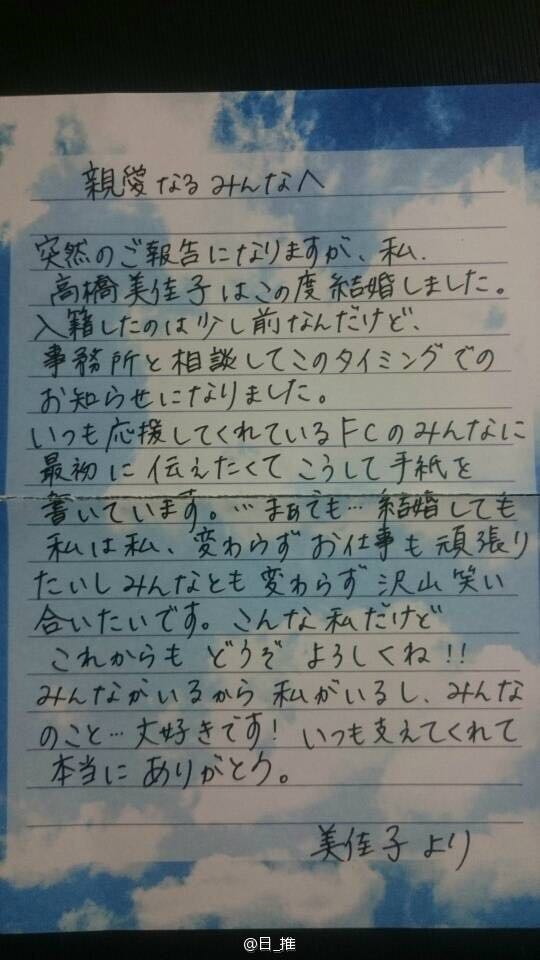 親愛なるみんなへ
突然のご報告になりますが、私、
高橋美佳子はこの度結婚しました。
入籍したのは少し前なんだけど、
事務所と相談してこのタイミングでの
お知らせになりました。
いつも応援してくれているFCのみんなに
最初に伝えたくてこうして手紙を
書いています。…まぁでも…結婚しても
私は私、変わらずお仕事も頑張り
たいしみんなとも変わらず沢山笑い
合いたいです。こんな私だけど
これからもどうぞよろしくね!!
みんながいるから私がいるし、みんな
のこと…大好きです!いつも支えてくれて
本当にありがとう。
美佳子より
@日_推